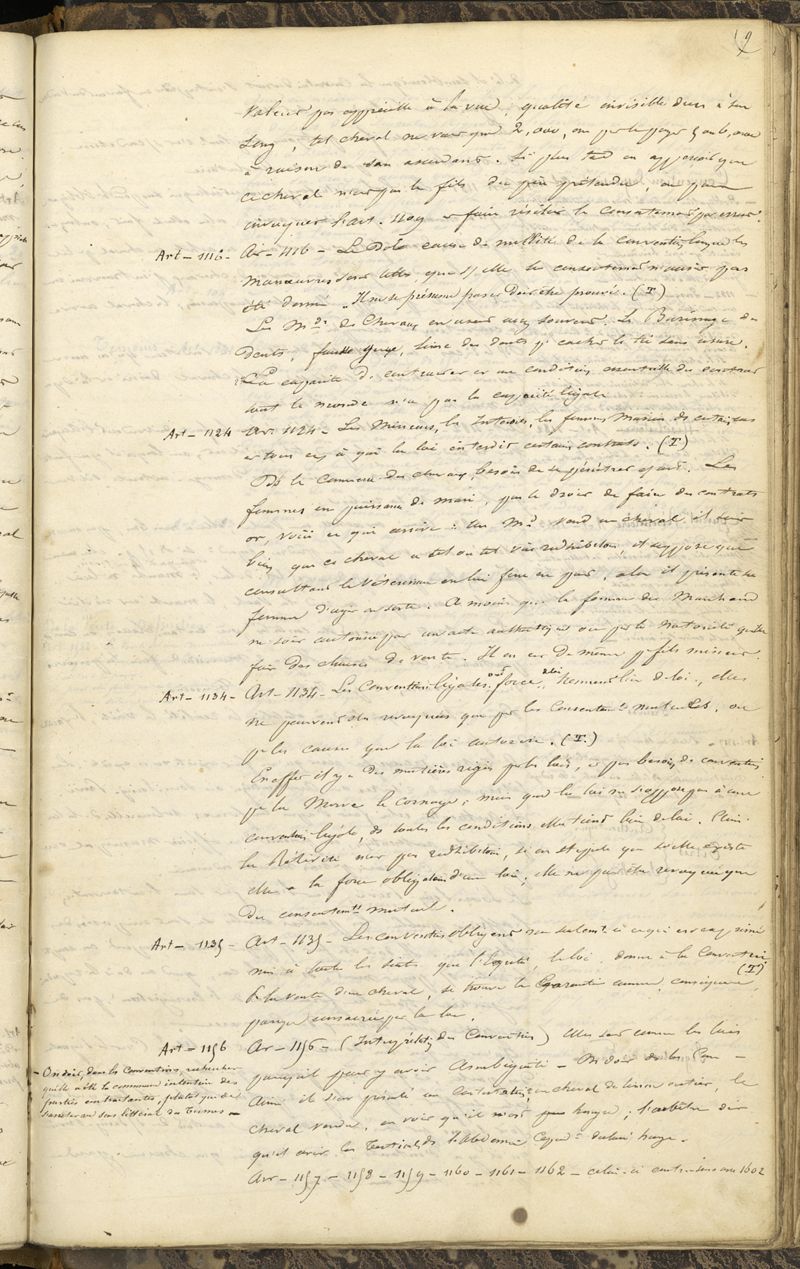 9
valeur pas appréciée à la vue, qualité invisible dues à son
sang, tel cheval ne vaut que 2,000, on peut le payer 5 ou 6,000
à raison de son ascendant. Si plus tard on apprenait que
ce cheval n'est pas le fils du père prétendu on peut
invoquer l'art. 1109 et faire résilier le consentement par erreur.
Art - 1116 - Art - 1116 - Le Dol cause de nullité de la convention lorsque les
manœuvres sont telles que s/ elle le consentement n'aurait pas
été donné. Il ne se présume pas et doit être prouvé. (T)
Les Mds de Chevaux en usent assez souvent. Le Burinage des
dents, fausse queue, limer des dents p/ cacher le tic sans usure.
La capacité de contracter est une condition essentielle du contrat
tout le monde n'a pas la capacité légale
Art - 1124 Art. 1124 - Les Mineurs, les Interdits, les femmes mariées ds certains cas
et tous ceux à qui la loi interdit certains contrats. (T)
Ds le commerce des chevaux, besoin de se pénétrer de cet art. Les
femmes en puissance de mari, pas le droit de faire des contrats
or, voici ce qui arrive : Un Md vend un cheval il sait
bien que ce cheval a tel ou tel vice rédhibitoire, et suppose que
consultant le Vétérinaire on lui fera un procès, alors il présente sa
femme d'agir en sorte. A moins que la femme du Marchand
ne soit autorisée par un acte authentique ou par la notoriété qu'elle
fait des choses de vente. Il en est de même p/ fils mineur.
Art - 1134 - Art - 1134 - Les Conventions légales ont force de loi, tiennent lieu de loi, elles
ne peuvent être révoquées que par les Consentements mutuels, ou
p/ les causes que la loi autorise. (T.)
En effet il y a des matières régies par les lois, et pas besoin de convention
p/ la Morve le cornage; mais quand la loi ne s'oppose pas à une
convention légale, ds toutes les conditions elle tient lieu de loi. Ainsi
la Rétivité n'est pas rédhibitoire, si on stipule que si elle existe
elle a la force obligatoire d'une loi, elle ne peut être révoquée que
du consentement mutuel.
Art - 1135 - Art - 1135 - Les conventions obligent non seulement à ce qui est exprimé
mais à toutes les suites que l'Equité, la loi, donne à la Convention
(T)
Ds la vente d'un cheval, se trouve la Garantie comme conséquence
parce que consacrée par la loi.
Art - 1156 Art - 1156 - (Interprétation des Conventions) Elles sont comme les lois
puisqu'il peut y avoir Ambiguïté - On doit ds les Con -
- On doit, dans les Conventions, rechercher
quelle a été la commune intention des
parties contractantes, plutôt que de
s'arrêter au sens littéral des Termes -
Ainsi il s'est présenté une contestation, un cheval de
cheval vendu, on voit qu'il n'est pas hongre, l'arbitre dit
qu'il avait les Testicules ds l'Abdomen
Art - 1157 - 1158 - 1159 - 1160 - 1161 - 1162 - celui-ci contre-sens avec 1602